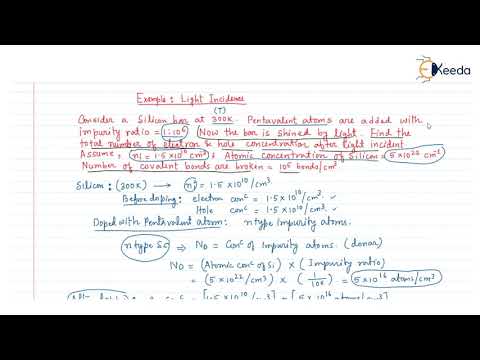 Ekeeda
Example: Light Incidence
(T)
Consider a Silicon bar at 300K. Pentavalent atoms are added with
impurity ratio = 1:10⁶. Now the bar is shined by light. Find the
total number of electron & hole concentration after light incident
Assume, ni = 1.5 × 10¹⁰ cm³, Atomic concentration of Silicon = 5×10²² cm⁻³
Number of covalent bonds are broken = 10⁵ bonds/cm³
Silicon: (300K) → ni = 1.5×10¹⁰/cm³
Before doping: electron conᶜ = 1.5×10¹⁰/cm³ ✓
Hole conᶜ = 1.5×10¹⁰/cm³ ✓
Doped with Pentavalent atom: n type impurity atoms.
n type SC ⇒ ND = Conᶜ of Impurity atoms. (donar)
ND = (Atomic conᶜ of Si) × (Impurity ratio)
= (5×10²²/cm³) × (1/10⁶) = 5×10¹⁶ atoms/cm³